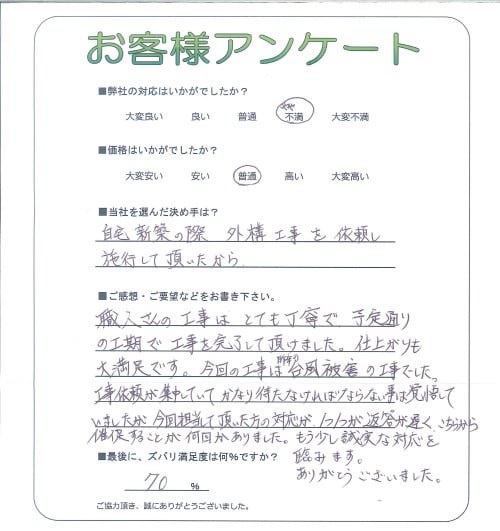 お客様アンケート
■弊社の対応はいかがでしたか？
大変良い 良い 普通 やや 不満 大変不満
■価格はいかがでしたか？
大変安い 安い 普通 高い 大変高い
■当社を選んだ決め手は？
自宅新築の際 外構工事を依頼し
施行して頂いたから
■ご感想・ご要望などをお書き下さい。
職人さんの工事はとても丁寧で 予定通り
の工期で工事を完了して頂けました。仕上がりも
大満足です。今回の工事は 台風被害の工事でした。
工事依頼が集中していてかなり待たなければならない事は覚悟して
いましたが今回担当して頂いた方の対応が1つ1つが返答が遅く、こちらから
催促することが何回かありました。もう少し誠実な対応を
臨みます。
ありがとうございました。
■最後に、ズバリ満足度は何%ですか？
70 %
ご協力頂き、誠にありがとうございました。